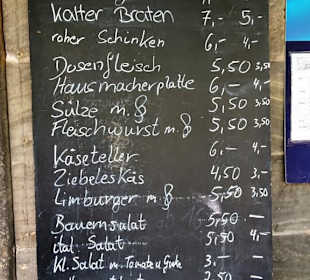 Kalter Braten 7,- 5,-
roher Schinken 6,- 4,-
Dosenfleisch 5,50 3,50
Hausmacherplatte 6,- 4,-
Sülze m. B 5,50 3,50
Fleischwurst m. B 5,50 3,50
Käseteller 6,- 4,-
Ziebeleskäs 4,50 3,-
Limburger m. B 5,50 3,50
Bauernsalat 5,50 -
ital. Salat 5,50 4,-
Kl. Salat m. Tomate u Gurke 3,- -